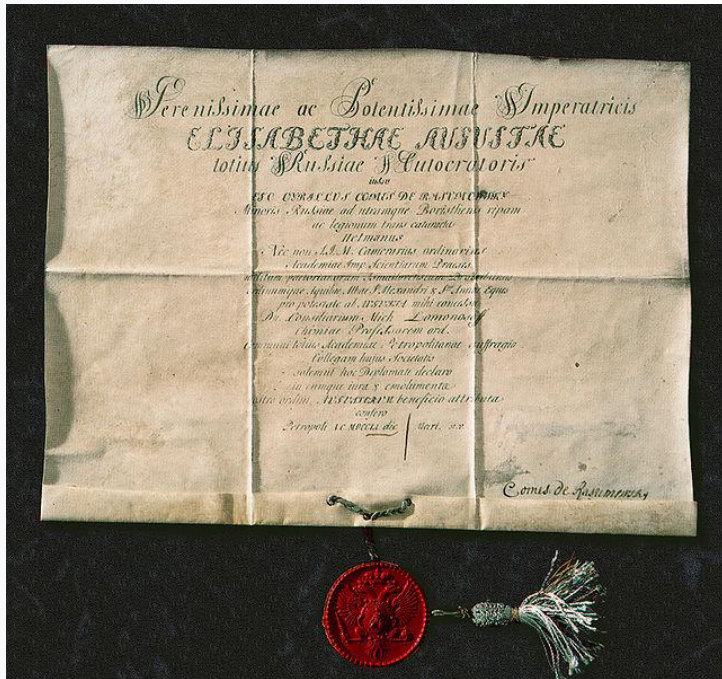 Serenissimae ac Potentissimae Imperatricis
ELISABETHAE AUGUSTAE
totius Russiae Autocratoris
iussu
EGO CYRILLUS COMES DE RASUMOWSKY
Minoris Russiae ad utramque Boristhenis ripam
ac legionum trans cataractas
Hetmanus
Nec non S. I. M. Camerarius ordinarius
Academiae Imp. Scientiarum Praeses
Ordinumque Aquilae Albae S. Alexandri & S. Annae Eques
pro potestate ab AUGUSTA mihi concessa
Dn. Consiliarium Mich. Lomonosoff
Chimiae Professorem ord.
Communi totius Academiae Petropolitanae suffragio
Collegam hujus Societatis
solemni hoc Diplomate declaro
iura & emolumenta
nostro ordini AUGUSTARUM beneficio attributa
confero
Petropoli die Mart.
Comes de Rasumowsky